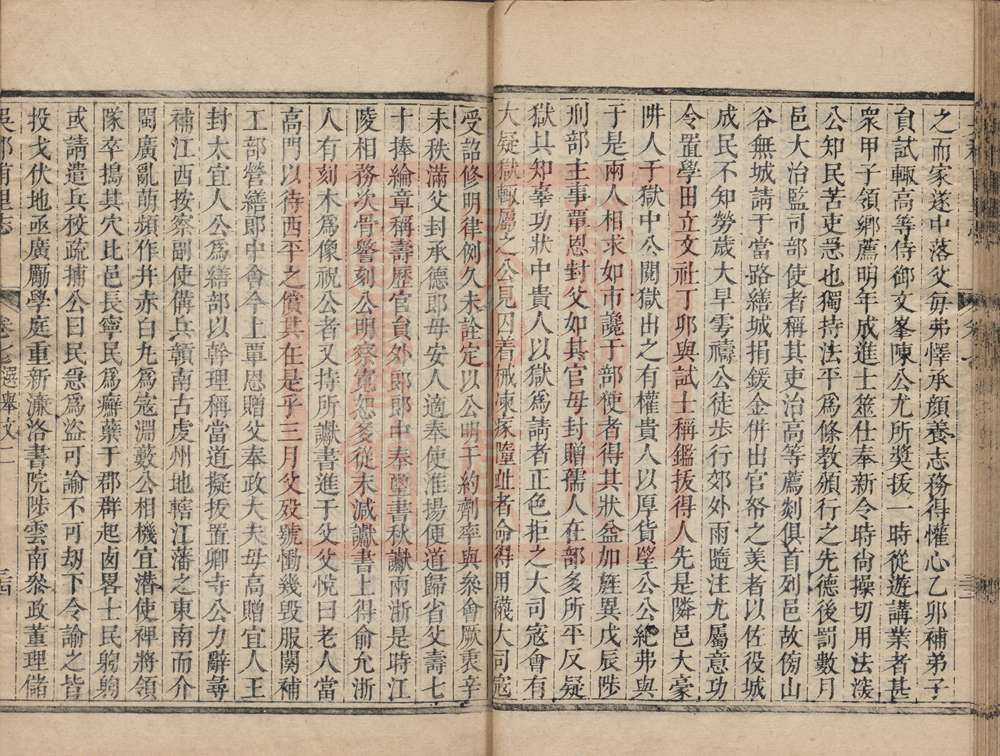 之而家遂中落父每弗懌承顏養志務得懽心乙卯補弟子
員試輒高等侍御文峯陳公尤所奬拔一時從遊講業者甚
衆甲子領鄉薦明年成進士筮仕奉新令時尚操切用法深
公知民苦吏急也獨持法平爲條教頒行之先德後罰數月
邑大治監司部使者稱其吏治高等薦剡俱首列邑故傍山
谷無城請于當路繕城捐鍰金併出官帑之羨者以佐役城
成民不知勞歲大旱雩禱公徒歩行郊外雨隨注尤屬意功
令置學田立文社丁卯與試士稱鑑拔得人先是隣邑大豪
阱人于獄中公閱獄出之有權貴人以厚貨望公公絶弗與
于是兩人相求如市讒于部使者得其狀益加旌異戊辰陟
刑部主事覃恩封父如其官母封贈孺人在部多所平反疑
獄具知辜功狀中貴人以獄爲請者正色拒之大司寇會有
大疑獄輒屬之公見囚着械凍塚墮趾者命得用襪大司寇
受詔修明律例久未詮定以公明于約劑率與叅會厥衷辛
未秩滿父封承德郎母安人適奉使淮揚便道歸省父壽七
十捧綸章稱壽歷官員外郎郎中奉璽書秋讞兩浙是時江
陵相務次骨謷刻公明察寛恕多從末減讞書上得俞允浙
人有刻木爲像祝公者又持所讞書進于父父悅曰老人當
高門以待西平之償其在是乎三月父殁號慟幾毀服闋補
工部營繕郎中會今上覃恩贈父奉政大夫母高贈宜人王
封太宜人公爲繕部以幹理稱當道擬拔置卿寺公力辭尋
補江西按察副使備兵贛南古虔州地轄江藩之東南而介
閩廣亂萌頻作井赤白九爲寇淵藪公相機宜潜使裨將領
隊卒搗其穴比邑長寧民爲癬蘖于郡群起鹵畧士民躬躬
或請遣兵校疏捕公曰民急爲盜可諭不可刼下令諭之皆
投戈伏地亟廣勵學庭重新濂洛書院陟雲南叅政董理儲
吳郡甫里志 卷之七選舉攷二 三十四